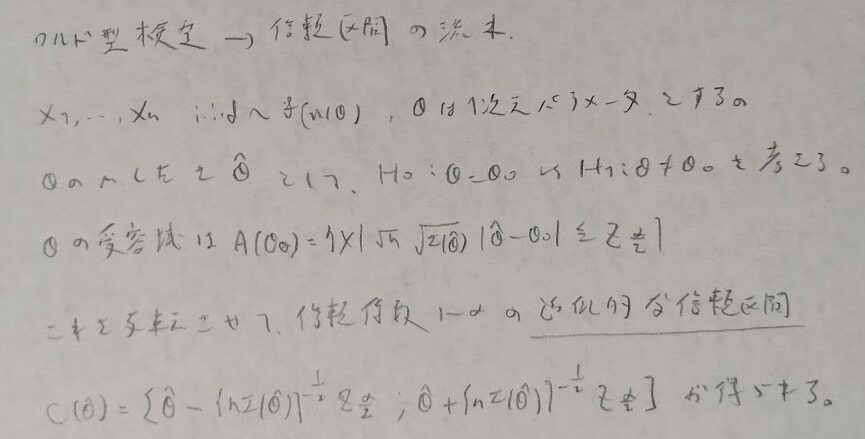 ワルド型検定 → 信頼区間の流れ.
X1, …, Xn i.i.d ~ f(x|θ), θは1次元パラメータとする。
θのMLEを θ̂ として、H0: θ=θ0 vs H1: θ≠θ0を考える。
θの受容域は A(θ0) = {X| √n √I(θ̂) |θ̂-θ0| ≤ Z α/2}
これを反転させて、信頼係数 1-αの近似的な信頼区間
C(θ̂) = [θ̂ - {nI(θ̂)}^-1/2 Z α/2 ; θ̂ + {nI(θ̂)}^-1/2 Z α/2] が得られる。